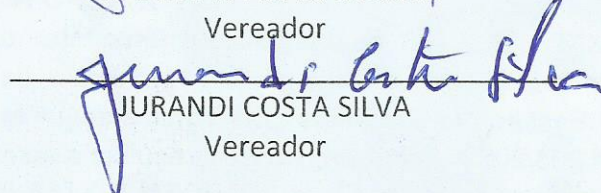 Vereador
Jurandi Costa Silva
JURANDI COSTA SILVA
Vereador